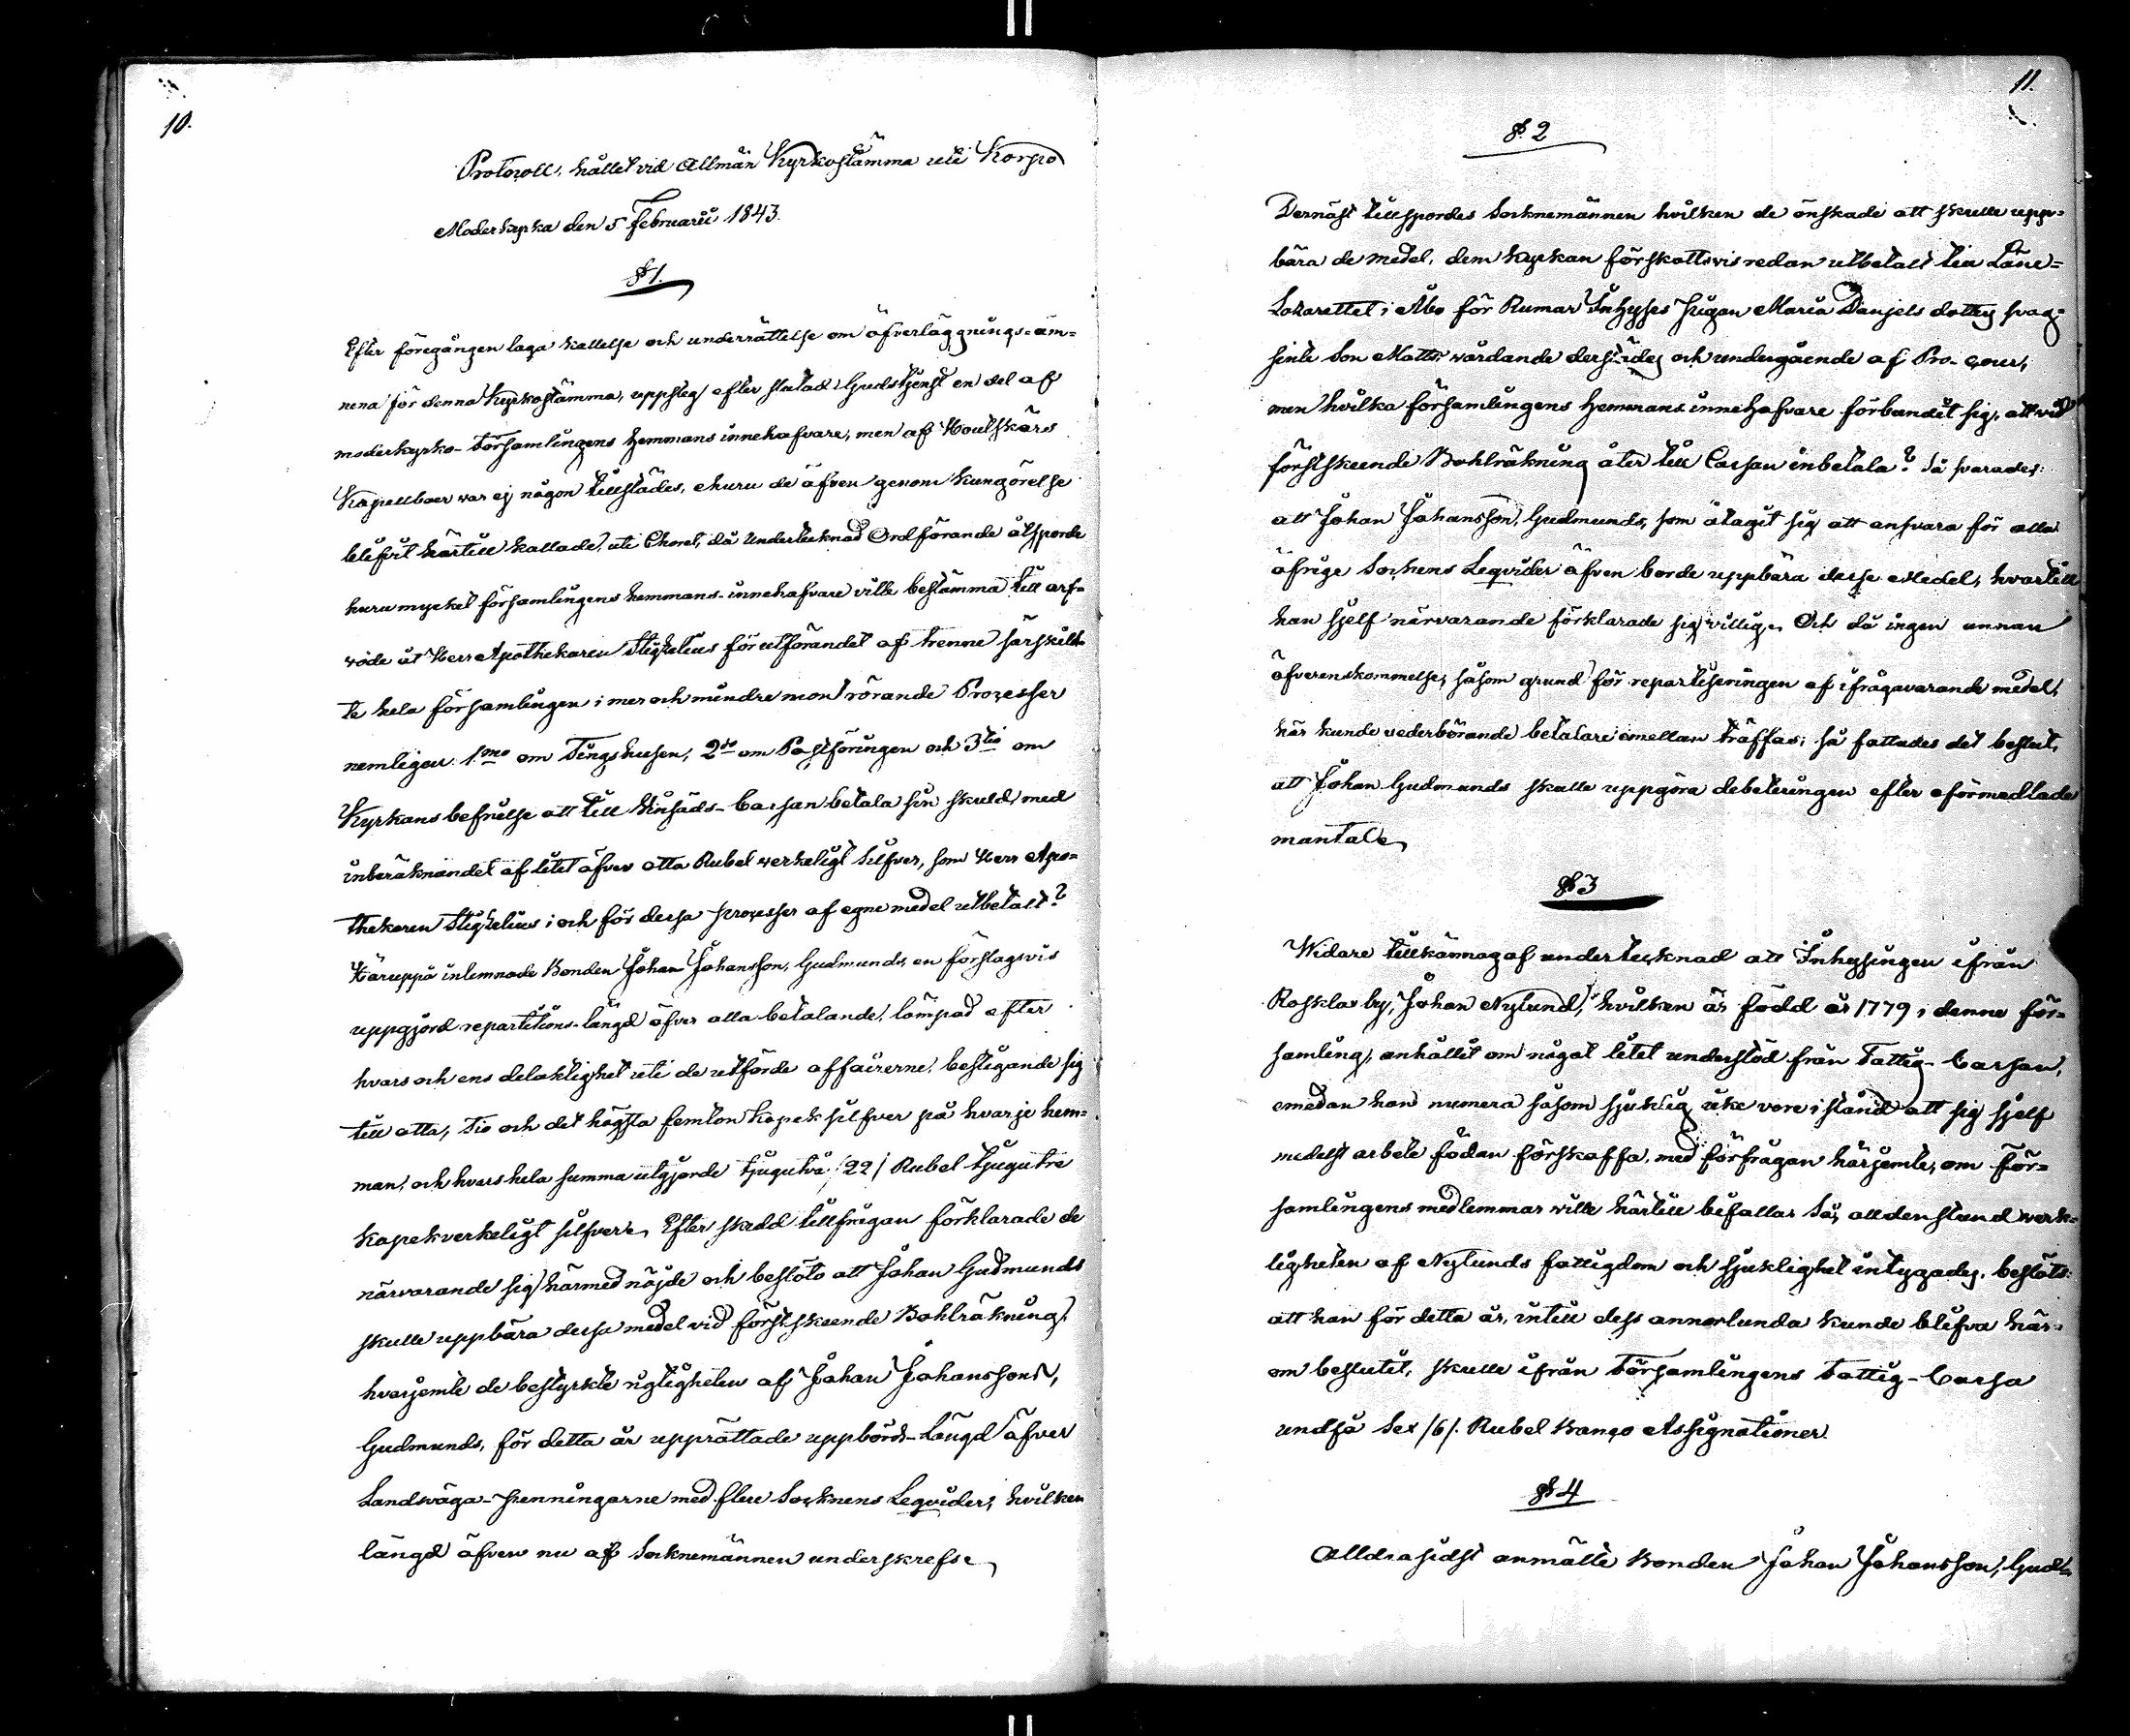 10.
Protocoll, hållet vid Allmän Kyrkostämma uti Korpo
Moderkyrka den 5 Februarii 1843.
§ 1.
Efter föregången laga kallelse och underrättelse om öfverläggnings-äm-
nena för denna Kyrkostämma, uppsteg efter slutad Gudstjenst en del af
moderkyrko-Församlingens hemmans innehafvare, men af Houtskärs
Kapellboer war ej någon tillstädes, ehuru de äfven genom kungörelse
blifvit härtill kallade, uti Choret, då Undertecknad Ordförande åtsporde
huru mycket församlingens hemmans-innehafvare ville bestämma till arf-
wode åt Herr Apothekaren Stigzelius för utförandet af trenne särskild-
ta hela församlingen i mer och mindre mon rörande Processer
nemligen: 1mo om Tingshusen, 2do om Postföringen och 3tio om
Kyrkans befrielse att till Krisäds-Cassan betala sin skuld, med
inberäknandet af litet öfver otta Rubel werkeligt Silfver, som Herr Apo-
thekaren Stigzelius i och för dessa processer af egne medel utbetalt?
Häruppå inlemnade Bonden Johan Johansson, Gudmunds, en förslagsvis
uppgjord repartitions-längd öfver alla betalande, lämpad efter
hvars och ens delaktighet uti de utförde affairerne, bestigande sig
till otta, tio och det högsta femton kopek silfver på hvarje hem-
man, och hvars hela summa utgjorde tjugutvå /22/ Rubel tjugutre
kopek verkeligt silfver. Efter skedd tillfrågan förklarade de
närvarande sig härmed nöjde och beslöto att Johan Gudmunds
skulle uppbära dessa medel vid förstskeende Bohlräkning,
hvarjemte de bestyrkte rigtigheten af Johan Johanssons,
Gudmunds, för detta år upprättade uppbörds-Längd öfver
Landsväga-penningarne med flere Socknens Leqvider, hvilken
längd äfven nu af Socknemännen underskrefs.
11.
§ 2
Dernäst tillspordes Socknemännen hvilken de önskade att skulle upp-
bära de medel, dem kyrkan förskottsvis redan utbetalt till Läne-
Lazarettet i Åbo för Rumar Inhyses Pigan Maria Danjels dotter svag-
sinte Son Matts wårdande derstädes och undergående af Pro-Cour,
men hvilka församlingens Hemmans innehafvare förbundit sig, att vid
förstskeende Bohlräkning åter till Cassan inbetala? Då svarades:
att Johan Johansson, Gudmunds, som åtagit sig att ansvara för alla
öfrige Sockens Leqvider äfven borde uppbära desse Medel, hvartill
han sjelf närvarande förklarade sig villig. Och då ingen annan
öfverenskommelse, såsom grund för repartiseringen af ifrågavarande medel,
här kunde vederbörande betalare emellan träffas; så fattades det beslut,
att Johan Gudmunds skulle uppgöra debiteringen efter oförmedlade
mantal.
§ 3
Widare tillkännagaf undertecknad att Inhysingen ifrån
Roskla by, Johan Nylund, hvilken är född år 1779 i denne för-
samling, anhållit om något litet understöd från Fattig-Cassan,
emedan han numera såsom sjuklig icke vore i stånd att sig sjelf
medelst arbete födan förskaffa, med förfrågan härjemte, om för-
samlingens medlemmar wille härtill bifalla? Så, alldenstund werk-
ligheten af Nylunds fattigdom och sjuklighet intygades, beslöts:
att han för detta år, intill dess annorlunda kunde blifva här-
om beslutit, skulle ifrån Församlingens Fattig-Cassa
undfå Sex /6/. Rubel Banco Assignationer.
§ 4
Alldrasidst anmälte Bonden Johan Johansson, Gud-